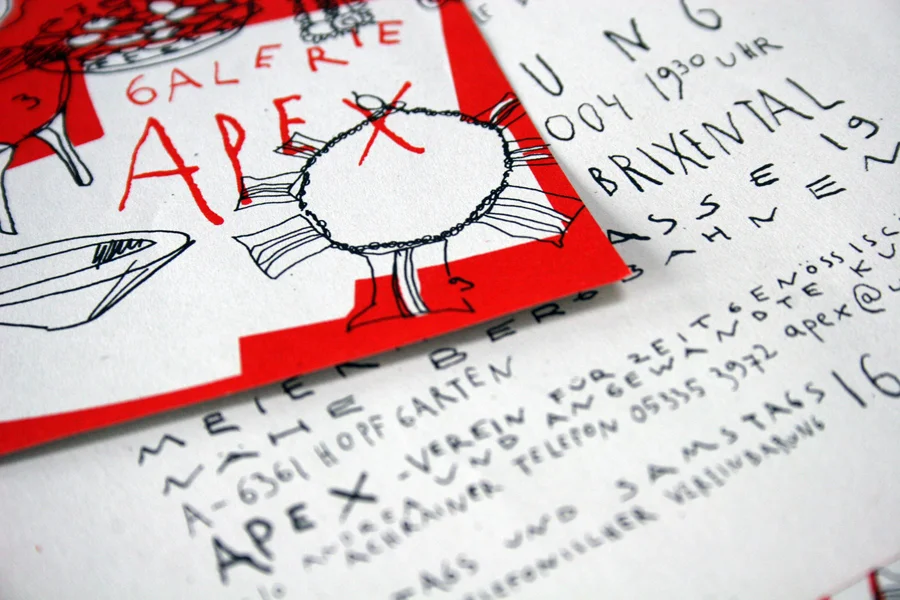 3
GALERIE
APEX
9
UNG
004 1930 UHR
BRIXENTAL
ASSE 19
MEIER
NÄHE BERGBAHNEN
A-6361 HOPFGARTEN
APEX -VEREIN FÜR ZEITGENÖSSISC
UND ANGEWANDTE KU
ACHRAINER TELEFON 05335 3972 apex@
TAGS UND SAMSTAGS 16
TELEFONISCHER VEREINBARUNG